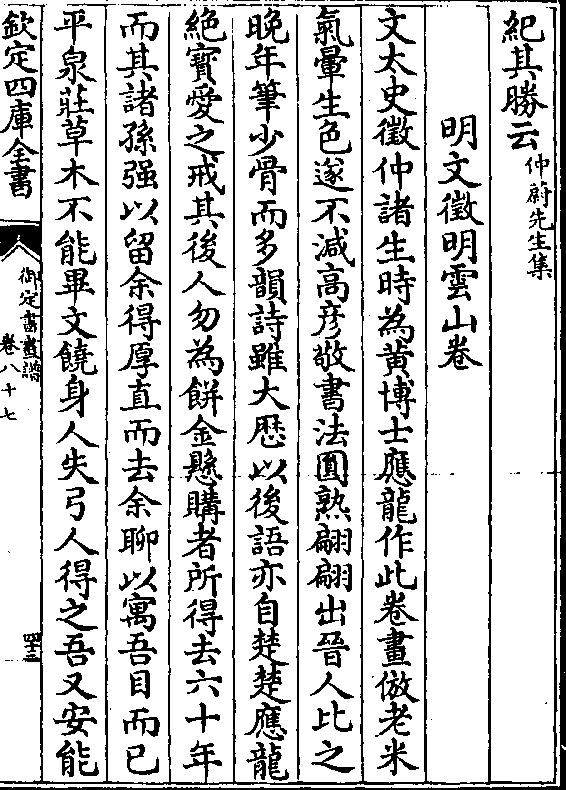 紀其勝云仲蔚先生集
明文徵明雲山卷
文太史徵仲諸生時為黄博士應龍作此卷畫倣老米
氣暈生色遂不減高彦敬書法圓熟翩翩出晉人比之
晚年筆少骨而多韻詩雖大厯以後語亦自楚楚應龍
絶寳愛之戒其後人勿為餅金懸購者所得去六十年
而其諸孫强以留余得厚直而去余聊以寓吾目而已
平泉莊草木不能畢文饒身人失弓人得之吾又安能
欽定四庫全書
御定書畫譜
卷八十七
四十三